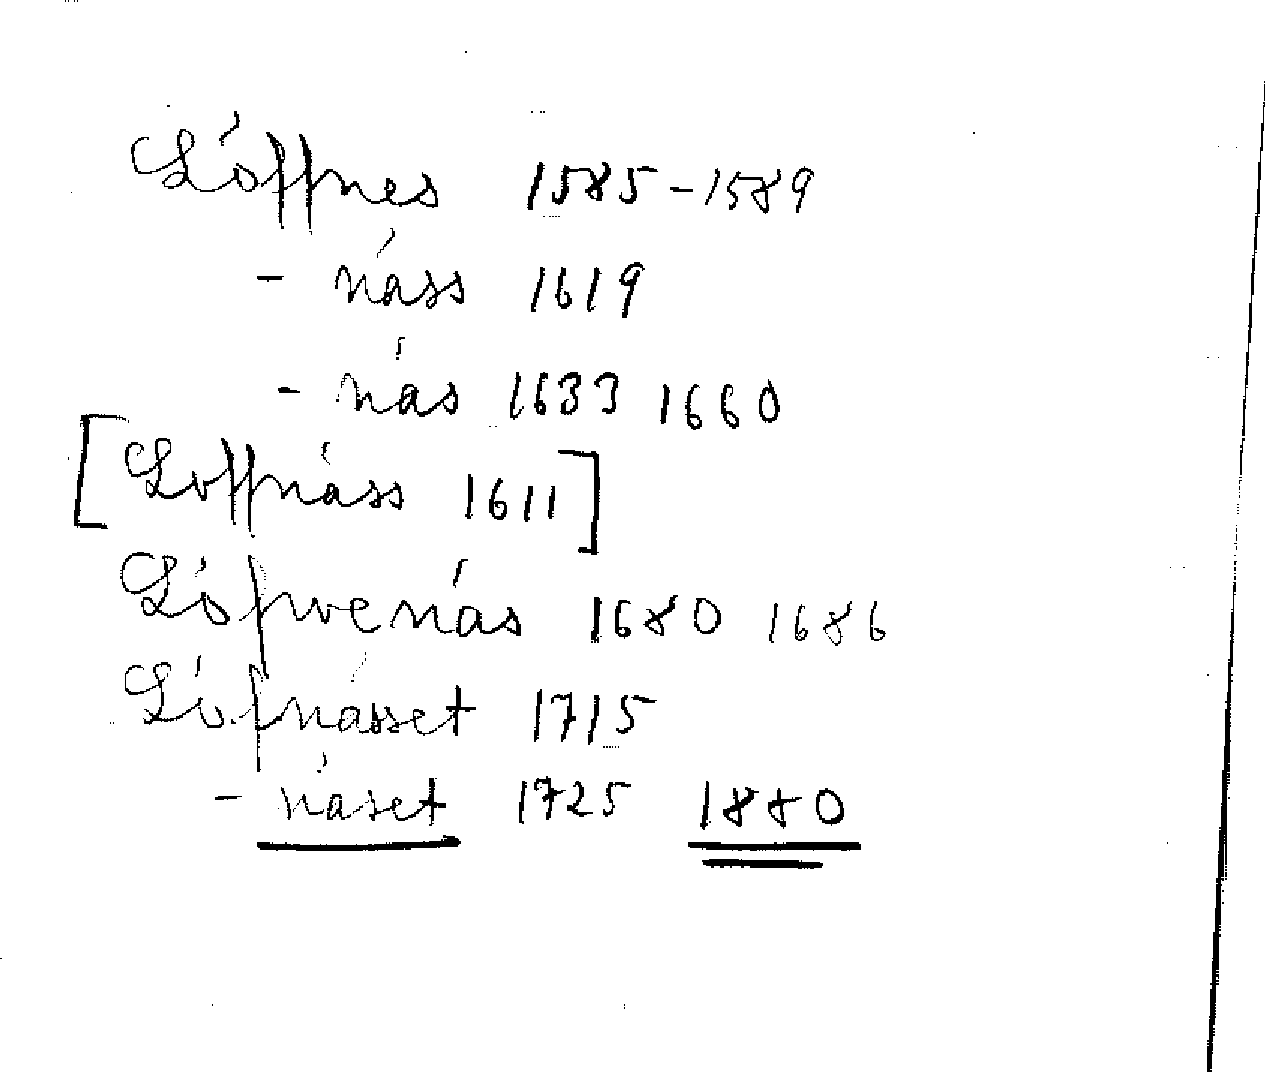 Löffnes 1585-1589
- näss 1619
- näs 1633 1660
[Loffnäss 1611]
Löfwenäs 1680 1686
Löfnässet 1715
- näset 1725 1880